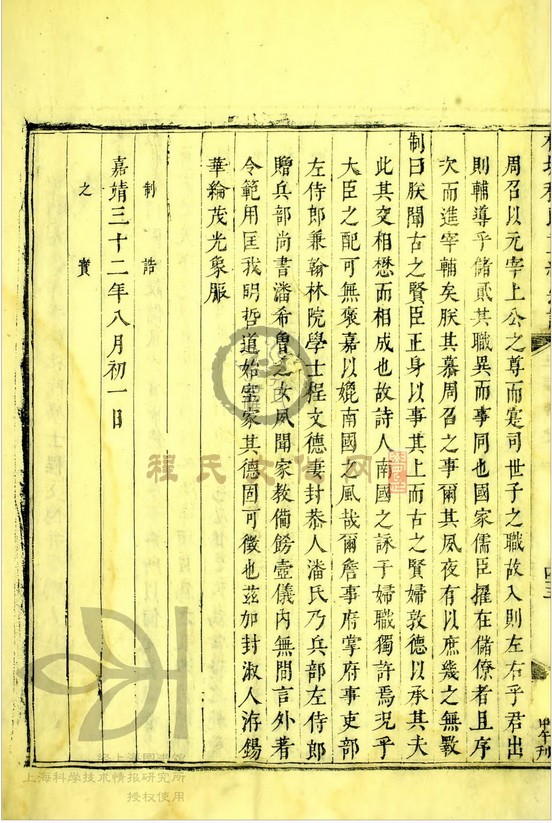 周召以元宰上公之尊而寔司世子之職故入則左右乎君出
則輔導乎儲貳其職異而事同也國家儒臣擢在儲僚者且序
次而進宰輔矣朕其慕周召之事爾其夙夜有以庶幾之無斁
制曰朕聞古之賢臣正身以事其上而古之賢婦敦德以承其夫
此其交相懋而相成也故詩人南國之詠于婦職獨許焉況乎
大臣之配可無褒嘉以媲南國之風哉爾詹事府掌府事吏部
左侍郎兼翰林院學士程文德妻封恭人潘氏乃兵部左侍郎
贈兵部尚書潘希魯之女夙閑家教備飭壼儀內無間言外著
令範用匡我明哲道始室家其德固可徵也茲加封淑人洊錫
華綸茂光象服
制誥
嘉靖三十二年八月初一日
之寶
四三
甲午刊
程氏文化网
上海圖書館
上海科学技术情报研究所
授权使用